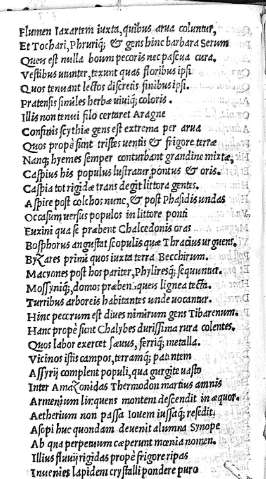 Flumen Iaxartem iuxta, quibus arua coluntur,
Et Tochari, Phruriq; & gens hinc barbara Serum
Quens est nulla boum pecoris nec pascua cura.
Vestibus utuntur, texunt quas floribus ipsi
Quos tenuant lectos discreis finibus ipsi.
Pratensis similes herbæ uiuiq; coloris.
Illis non tenui filo certaret Aragne
Confinis scythiæ gens est extrema per arua
Quos propè sunt tristes uentis & frigore terræ
Nanq; hyemes semper conturbant grandine mixtæ,
Caspius his populos lustrauit pontus & oris.
Caspia tot rigidæ trans degit littora gentes.
Aspire post colchos nunc, & post Phasidis undas
Occasum uersus populos in littore ponti
Euxini qua se præbent Chalcedonis oras
Bosphorus angustat scopulis quæ Thracius urguent.
Byzares primi quos iuxta terra Bechirum.
Macrones post hos pariter, Phyliresq; sequuntur.
Mossyniq; domos præbent quels lignea tecta.
Turribus arboreis habitantes unde uocantur.
Hinc pecorum est diues nimirum gens Tibarenum.
Hanc propè sunt Chalybes durissima rura colentes.
Quos labor exercet sæuus, ferriq; metalla.
Vicinos istis campos, terramq; patentem
Assyrij complent populi, qua gurgite uasto
Inter Amazonidas Thermodon martius amnis
Armenium linquens montem descendit in æquor.
Aetherium non passa Iouem iussaq; resedit,
Asopi huc quondam deuenit alumna Synope
Ab qua perpetuum cæperunt mœnia nomen.
Illius fluuij rigidas propè frigore ripas
Inuenies lapidem crystalli pondere puro